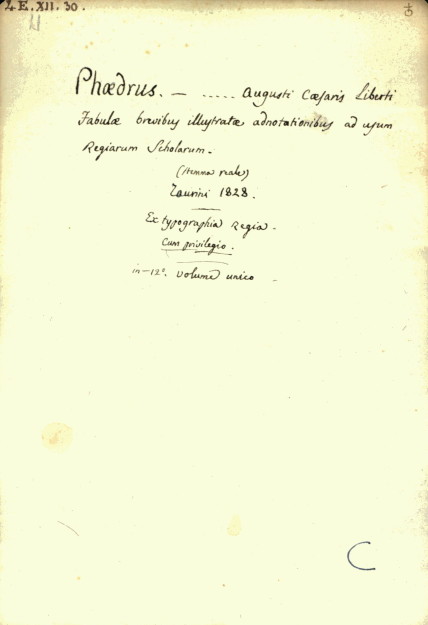 4. E. XII. 30.
21
Phædrus. — ..... Augusti Cæsaris Liberti
Fabulæ brevibus illustratæ adnotationibus ad usum
Regiarum Scholarum.
(stemma reale)
Taurini 1828.
Ex typographia Regia.
Cum privilegio.
in-12º. volume unico
C